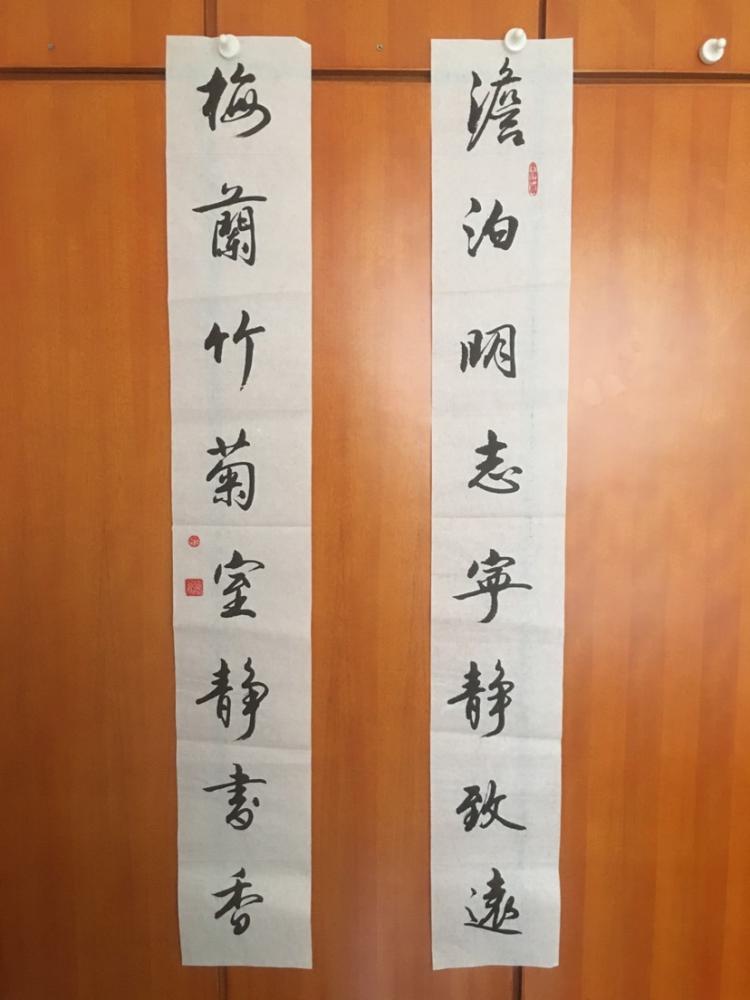 澹泊明志宁静致遠
梅蘭竹菊室静书香